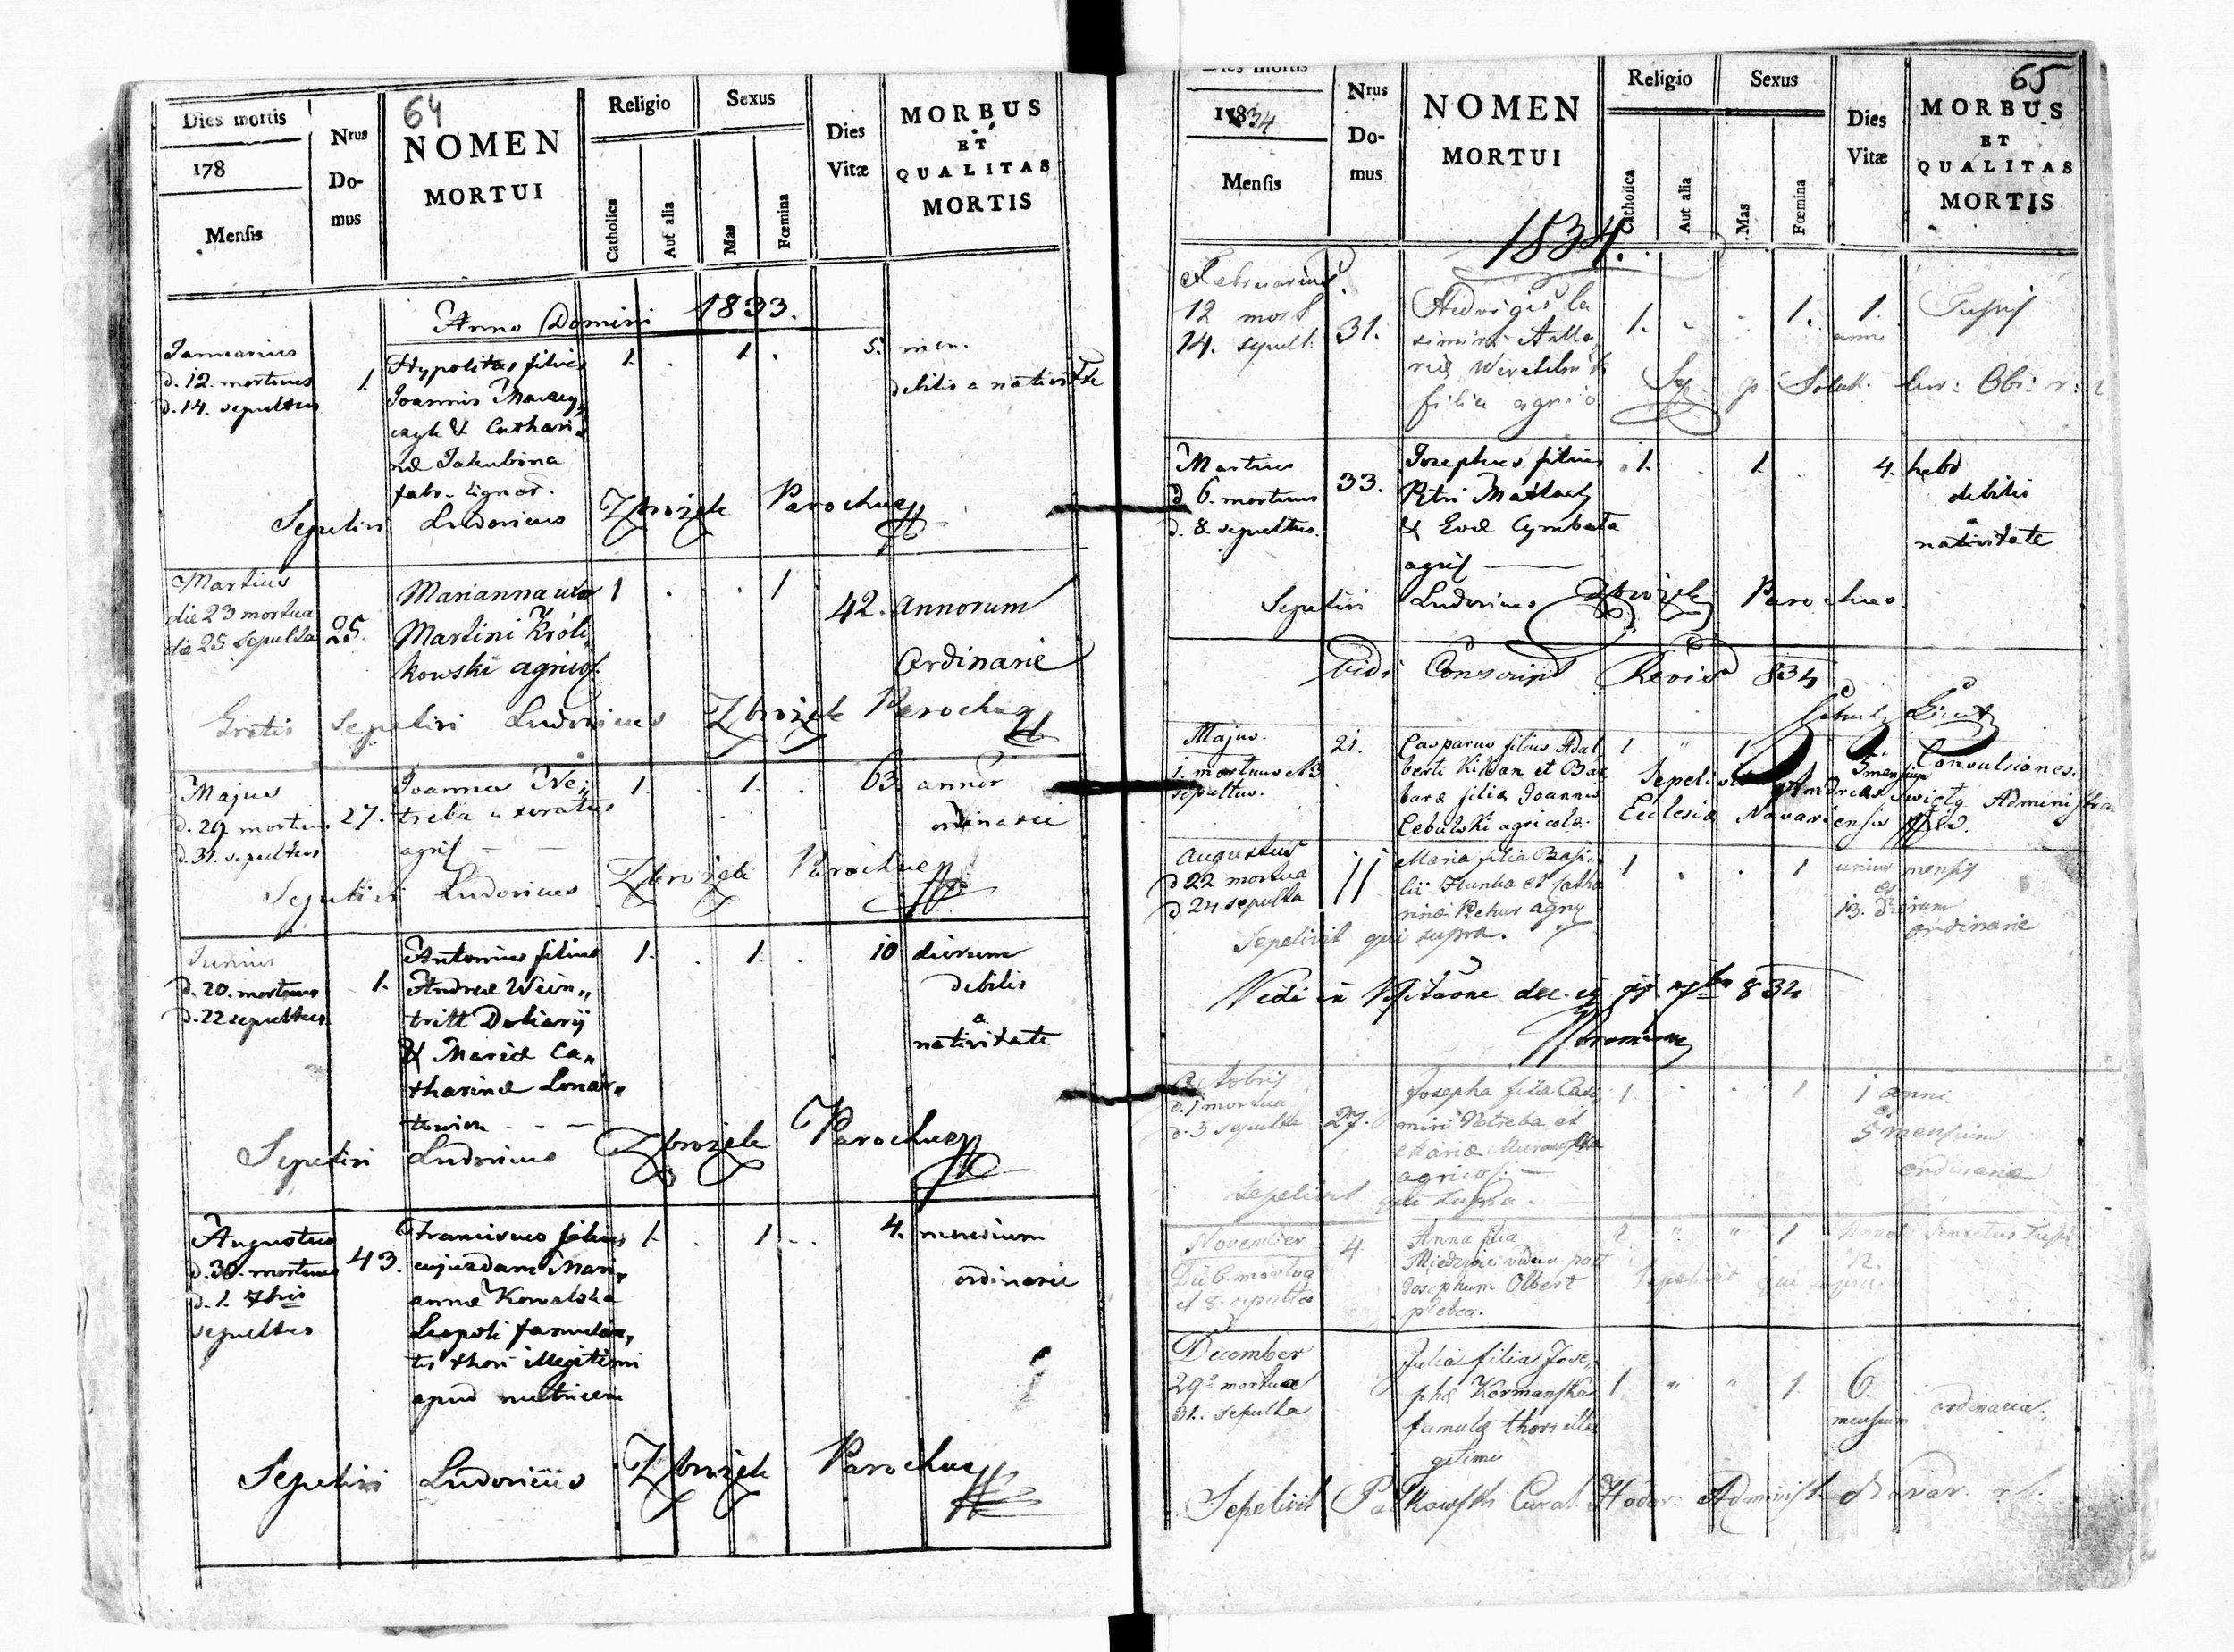 64
Dies mortis
178
Mensis
Nrus
Do-
mus
NOMEN
MORTUI
Religio
Catholica
Aut alia
Sexus
Mas
Fœmina
Dies
Vitæ
MORBUS
ET
QUALITAS
MORTIS
Anno Domini 1833.
Januarius
d. 12. mortuus
d. 14. sepultus
1.
Hypolitus filius
Joannis
& Cathari„
næ Jakubina
fabr. lignar.
1. . 1. .
5. men.
debilis a nativitate
Sepelivi Ludovicus Zbrożek Parochus
Martius
die 23 mortua
die 25 sepulta
25.
Marianna uxor
Martini Króli„
kowski agricol.
1 . . 1
42. Annorum
Ordinarie
Gratis Sepelivi Ludovicus Zbrożek Parochus
Majus
d. 29. mortuus
d. 31. sepultus
27.
Joannes Ne„
treba uxoratus
agric
1. . 1. .
63. annor
ordinarie
Sepelivi Ludovicus Zbrożek Parochus
Junius
d. 20. mortuus
d. 22 sepultus
1.
Antonius filius
Andreæ Wein„
tritt Doliarij
& Mariæ Ca„
tharinæ
1. . 1. .
10 dierum
debilis
a
nativitate
Sepelivi Ludovicus Zbrożek Parochus
Augustus
d. 30. mortuus
d. 1. 7bris
sepultus
43.
Franciscus filius
cujusdam Mari„
annæ Kowalska
Leopoli famulan„
tis thori illegitimi
apud nutricem
1. . 1. .
4. mensium
ordinarie
Sepelivi Ludovicus Zbrożek Parochus
65
Dies mortis
1834
Mensis
Nrus
Do-
mus
NOMEN
MORTUI
Religio
Catholica
Aut alia
Sexus
Mas
Fœmina
Dies
Vitæ
MORBUS
ET
QUALITAS
MORTIS
1834.
Februarius
12 mort
14. sepult.
31.
Hedvigis Ca
simiri & Ma
riæ
filia agric
1. . . 1.
1. anni
Tussis
Martius
d 6. mortuus
d. 8. sepultus.
33.
Josephus filius
Petri
& Evæ Cymbała
agric
1. . 1 .
4. hebd
debilis
a
nativitate
Sepelivi Ludovicus Zbrożek Parochus
Vidi Conscript Revis 834
Majus.
1. mortuus et 3
sepultus.
21.
Casparus filius Adal
berti Kilian et Bar
baræ filiæ Joannis
Cebulski agricola.
1 " 1
5 mensium
Convulsiones.
Sepelivit Andreas Święty Administra
Ecclesiæ Navariensis
Augustus
d 22 mortua
d 24 sepulta
11
Maria filia Basi„
lii Hunka et Catha
rinæ Petrur agric
1 . . 1
unius mensis
et
13. dierum
ordinarie
Sepelivit qui supra.
Octobris
d. 1 mortua
d. 3 sepulta
27.
Josepha filia Casi
miri Netreba et
Mariæ Murawska
agricol.
1 . . 1
1 anni
et
5 mensium
ordinaria
Sepelivit qui supra.
November
Die 6. mortua
et 8. sepulta
4.
Anna filia
vidua post
Josephum Olbert
plebea.
1 " " 1
Annor
72.
Sepelivit qui supra.
December
29ª mortua
31. sepulta
Julia filia Jose„
phæ Kormańska
famulæ thori ille
gitimi
1 " " 1
6.
mensium
ordinaria.
Sepelivit Curat. Administ Navar.